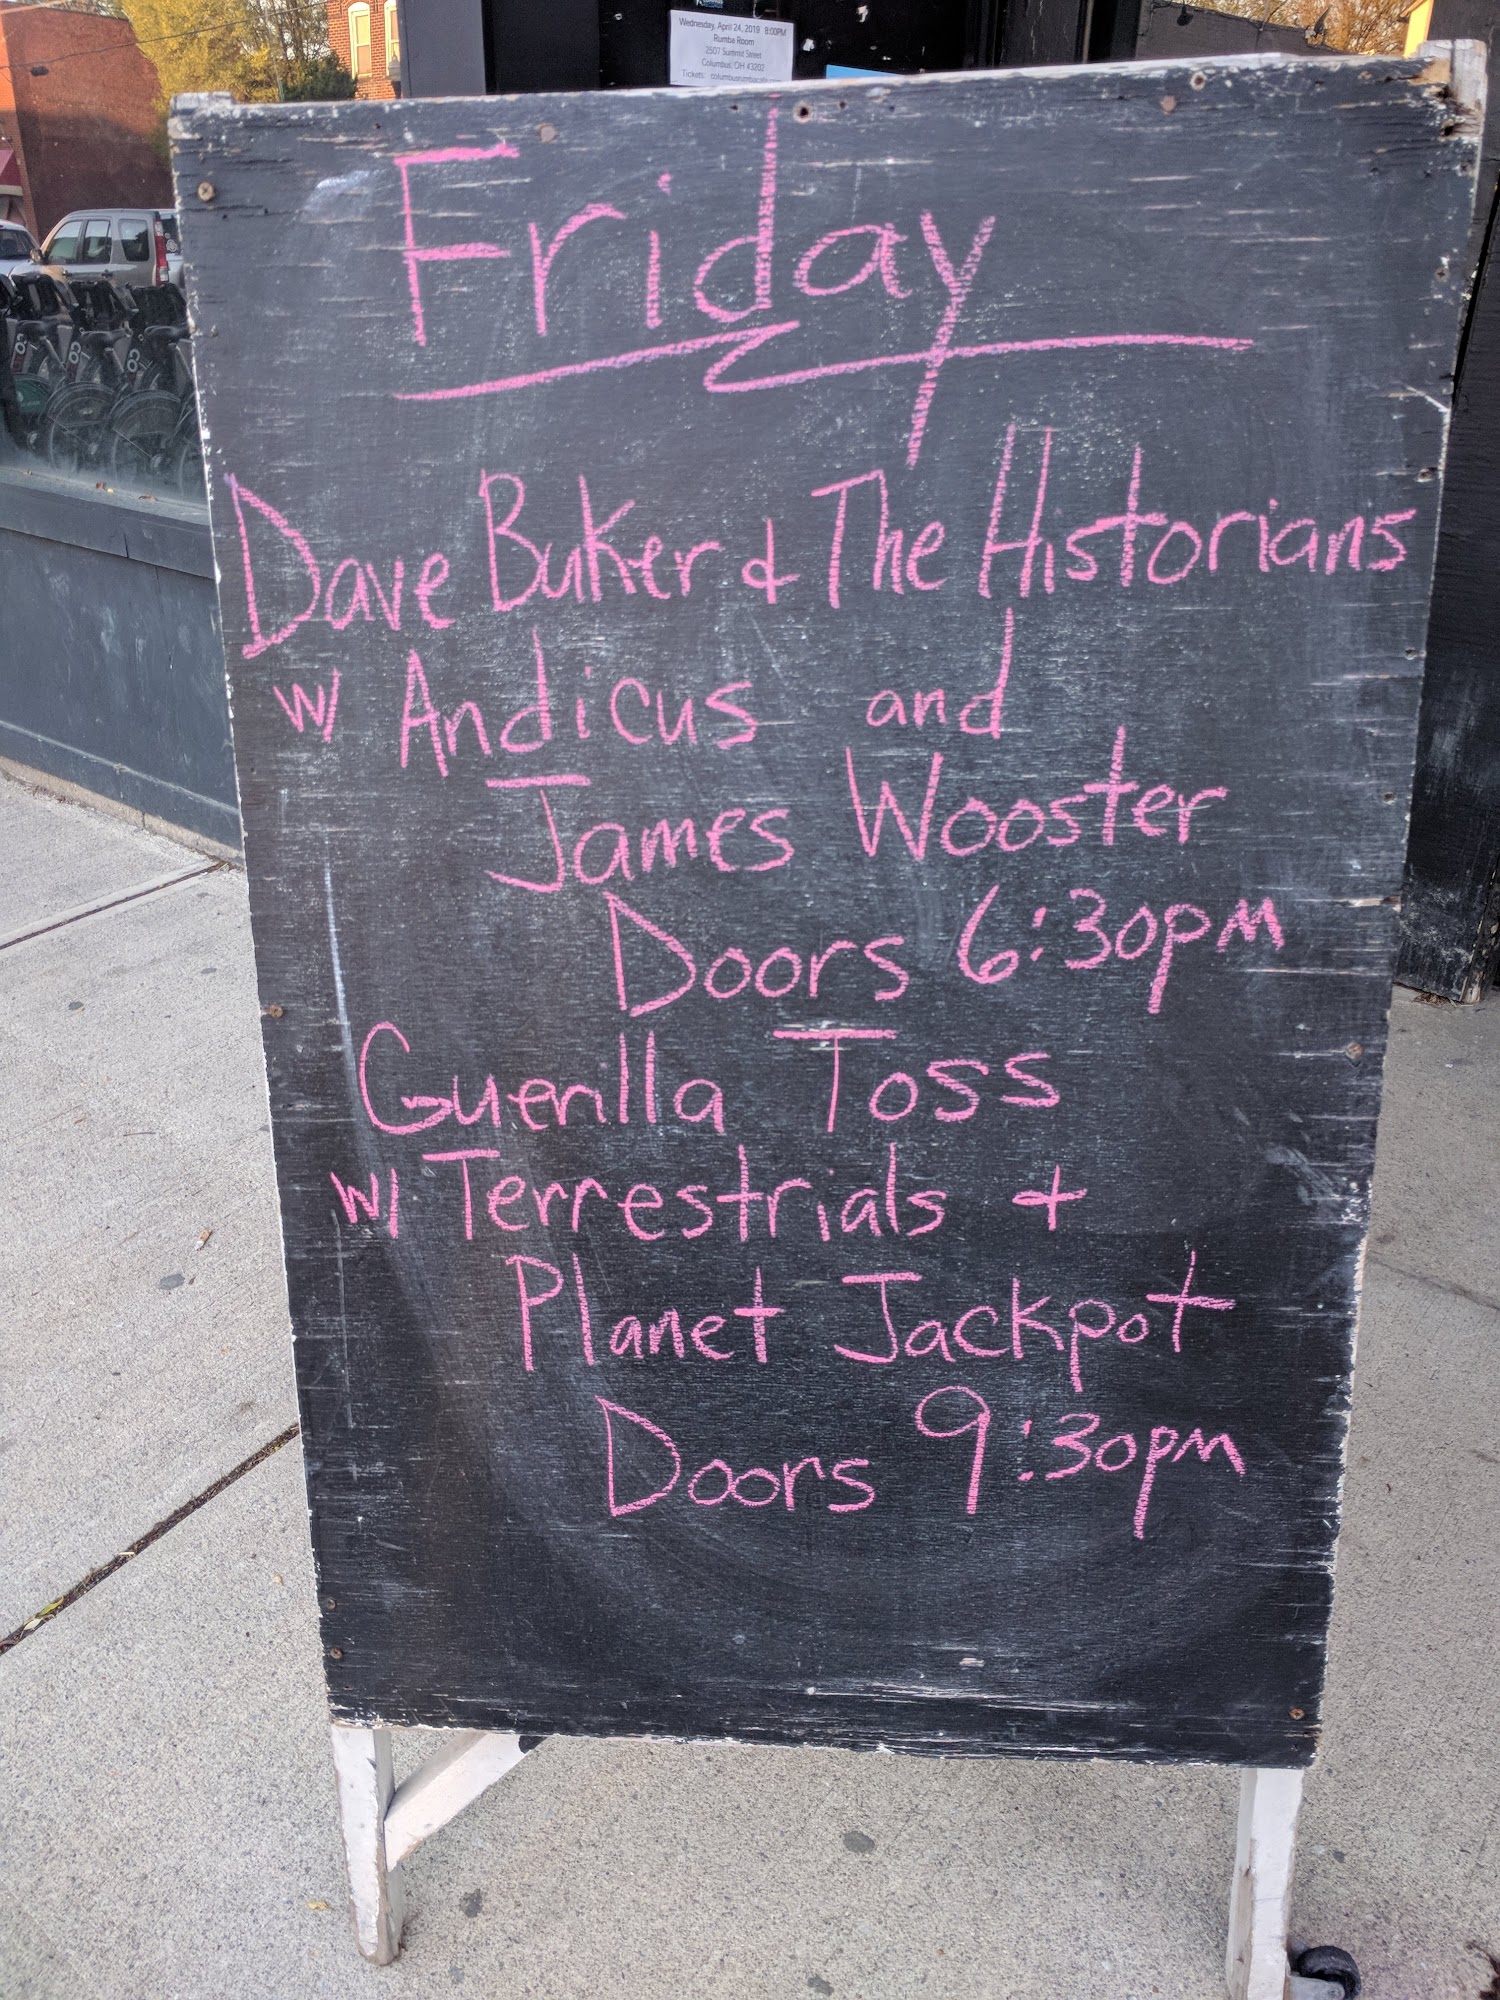 Wednesday, April 24, 2019 8:00PM
Rumba Room
2507 Summit Street
Columbus, OH 43202
Tickets: columbusrumbacafe.com
Friday
Dave Buker & The Historians
w/ Andicus and
James Wooster
Doors 6:30pm
Guerilla Toss
w/ Terrestrials +
Planet Jackpot
Doors 9:30pm